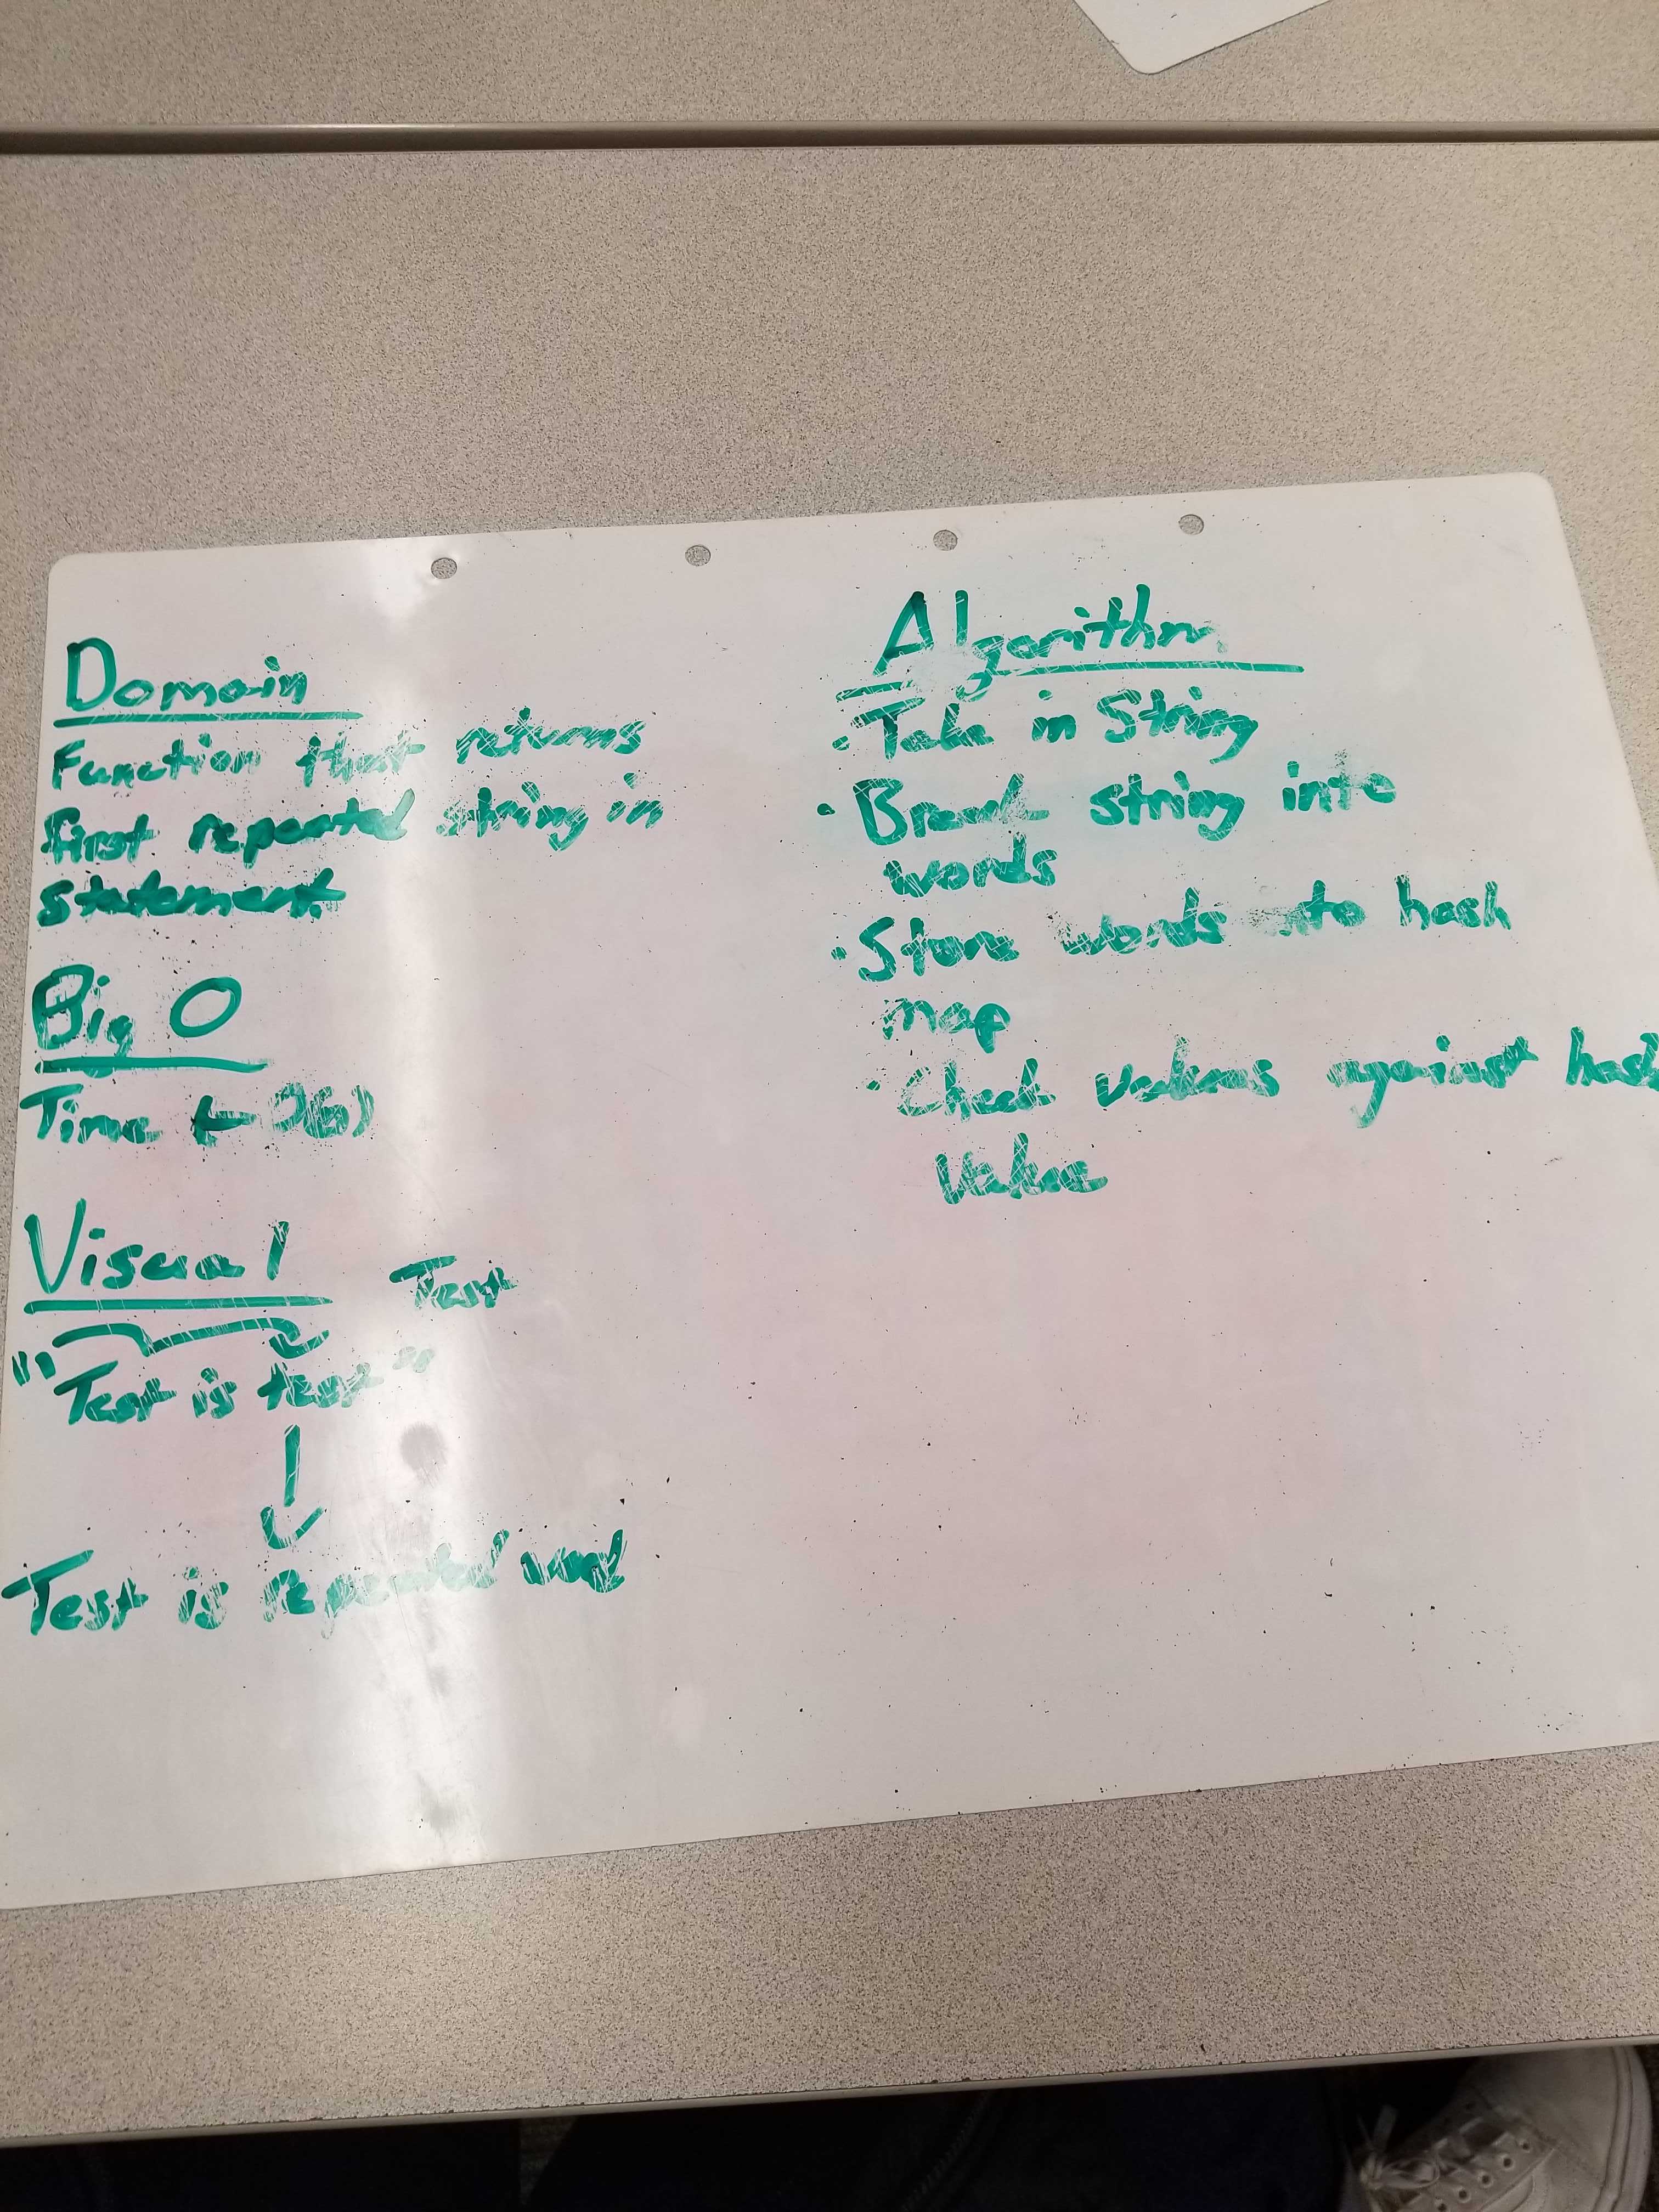 Domain
Function that returns
first repeated string in
statement
Big O
Time ←
Visual
Test
"Test is test"
Test is repeated word
Algorithm
· Take in String
· Break string into
words
· Store words into hash
map
· Check values against hash
value